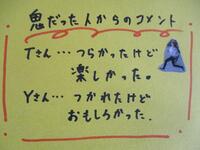 鬼だった人からのコメント
Tさん…つらかったけど
楽しかった。
Yさん…つかれたけど
おもしろかった.